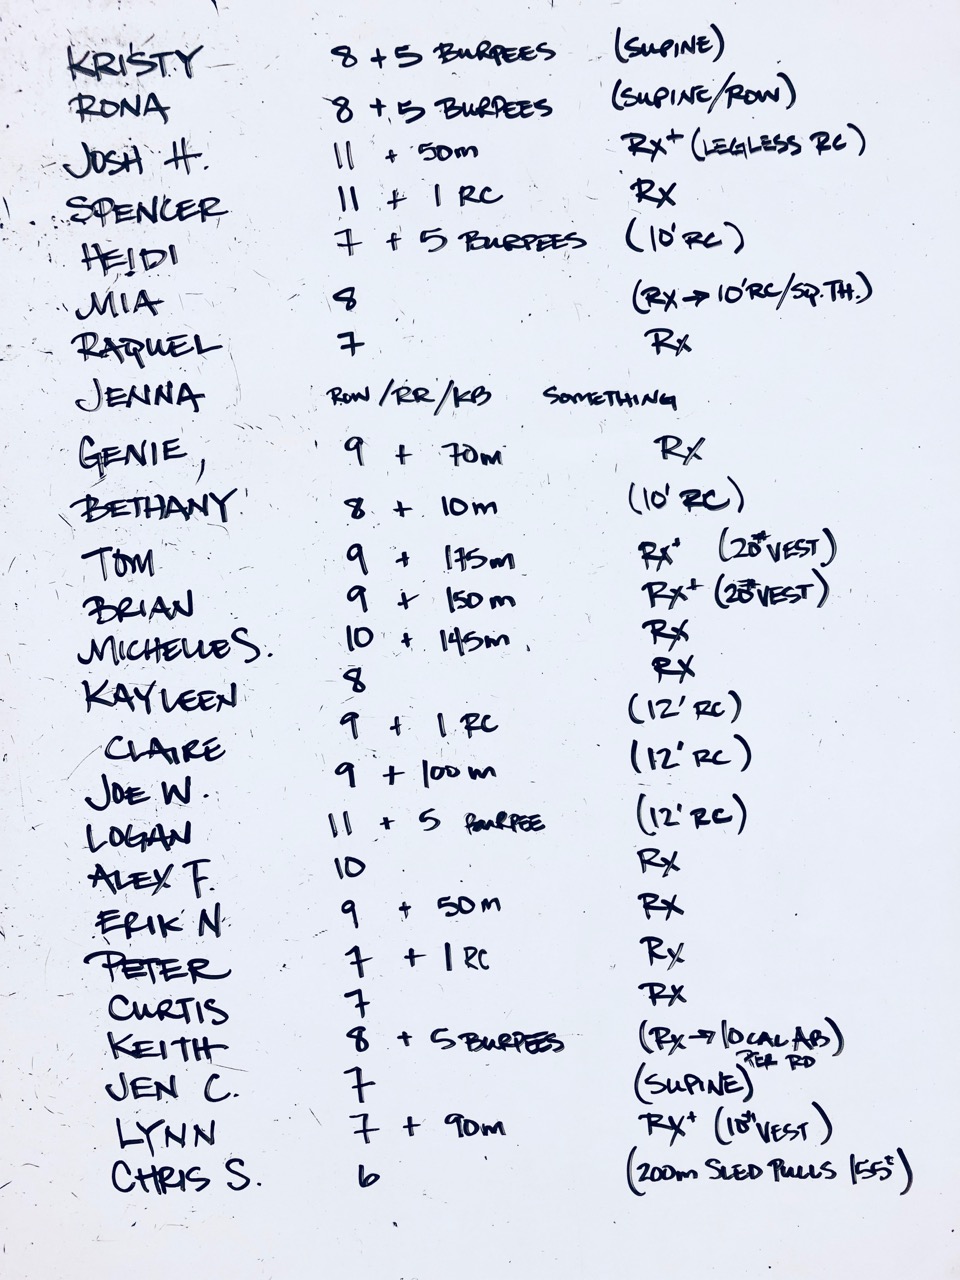 KRISTY 8 + 5 BURPEES (SUPINE)
RONA 8 + 5 BURPEES (SUPINE/ROW)
JOSH H. 11 + 50m RX+ (LEGLESS RC)
SPENCER 11 + 1 RC RX
HEIDI 7 + 5 BURPEES (10' RC)
MIA 8 (RX → 10'RC/SQ.TH.)
RAQUEL 7 RX
JENNA ROW/RR/KB SOMETHING
GENIE, 9 + 70m RX
BETHANY 8 + 10m (10' RC)
TOM 9 + 175m RX+ (20# VEST)
BRIAN 9 + 150m RX+ (20# VEST)
MICHELLE S. 10 + 145m RX
KAYLEEN 8 RX
CLAIRE 9 + 1 RC (12' RC)
JOE W. 9 + 100m (12' RC)
LOGAN 11 + 5 BURPEE (12' RC)
ALEX F. 10 RX
ERIK N 9 + 50m RX
PETER 7 + 1 RC RX
CURTIS 7 RX
KEITH 8 + 5 BURPEES (RX → 10CAL AB)
PER RD
JEN C. 7 (SUPINE)
LYNN 7 + 90m RX+ (10# VEST)
CHRIS S. 6 (200m SLED PULLS 155#)